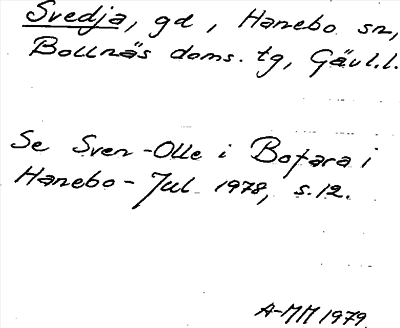 Svedja, gd, Hanebo sn,
Bollnäs doms. tg, Gävl.l.
Se Sven-Olle i Bofara i
Hanebo - Jul 1978, s.12.
A-MM 1979.